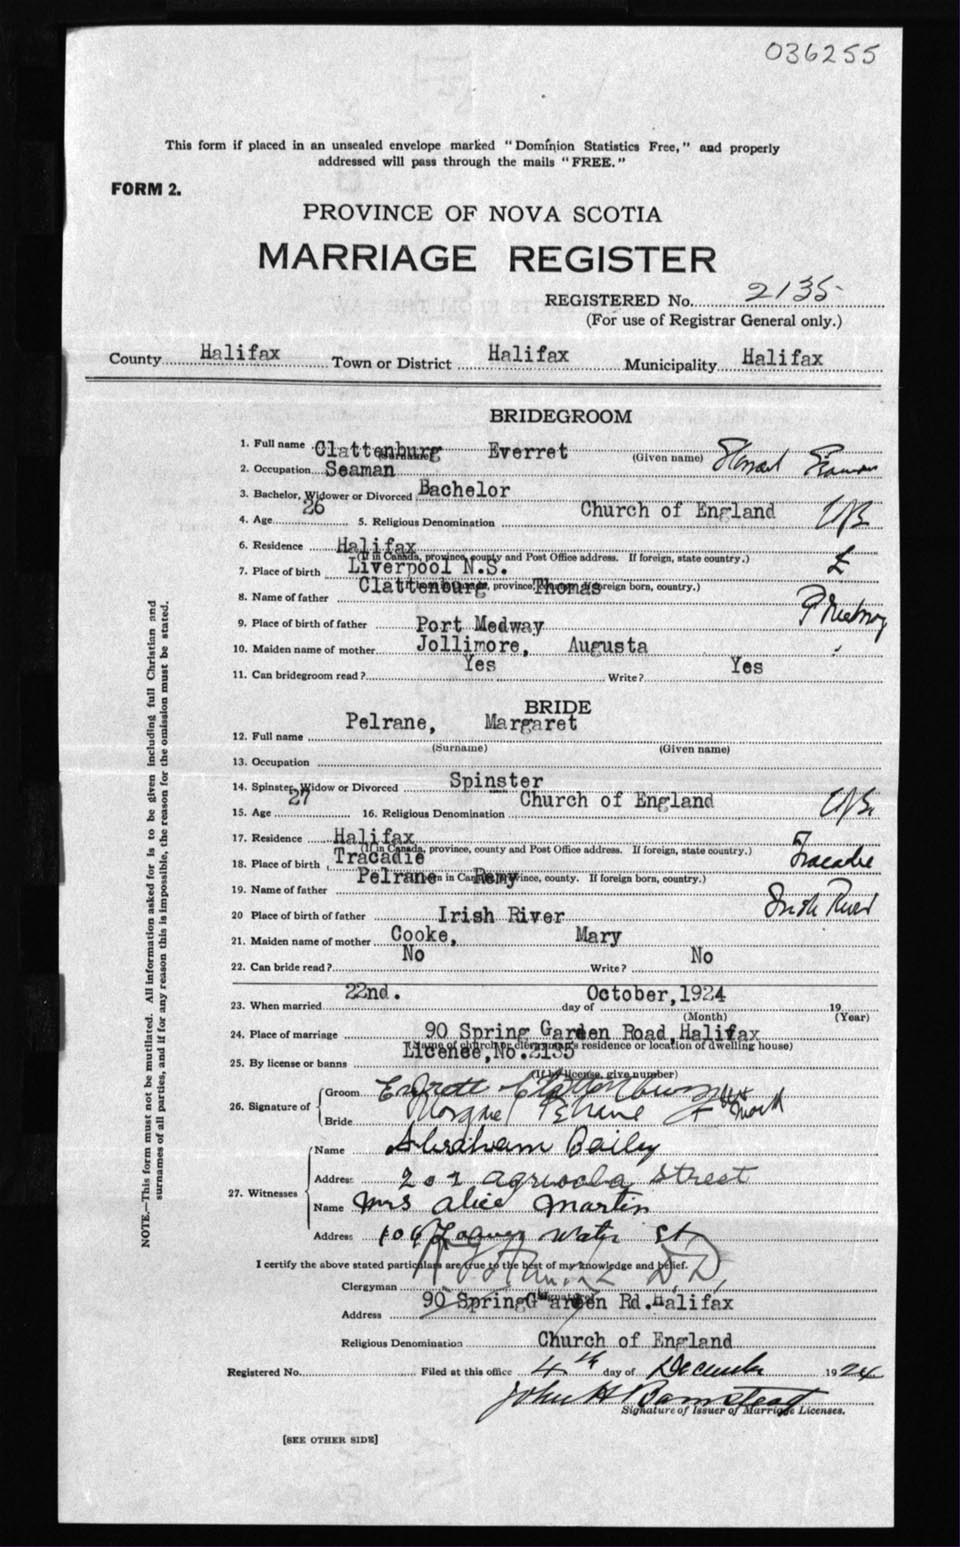 036255
This form if placed in an unsealed envelope marked "Dominion Statistics Free," and properly
addressed will pass through the mails "FREE."
FORM 2.
PROVINCE OF NOVA SCOTIA
MARRIAGE REGISTER
REGISTERED No. 2135
(For use of Registrar General only.)
County Halifax Town or District Halifax Municipality Halifax
BRIDEGROOM
1. Full name Clattenburg Everret (Given name)
2. Occupation Seaman
3. Bachelor, Widower or Divorced Bachelor
4. Age 26 5. Religious Denomination Church of England
6. Residence Halifax
(If in Canada, province, county and Post Office address. If foreign, state country.)
7. Place of birth Liverpool N.S.
8. Name of father Clattenburg Thomas
9. Place of birth of father Port Medway
10. Maiden name of mother Jollimore, Augusta
11. Can bridegroom read? Yes Write? Yes
BRIDE
12. Full name Pelrane, Margaret
(Surname) (Given name)
13. Occupation
14. Spinster, Widow or Divorced Spinster
15. Age 27 16. Religious Denomination Church of England
17. Residence Halifax
(If in Canada, province, county and Post Office address. If foreign, state country.)
18. Place of birth Tracadie Tracadie
19. Name of father Pelrane Remy
20 Place of birth of father Irish River Irish River
21. Maiden name of mother Cooke, Mary
22. Can bride read? No Write? No
23. When married 22nd. day of October, 1924 19
(Month) (Year)
24. Place of marriage 90 Spring Garden Road, Halifax
(Name of church or clergyman's residence or location of dwelling house)
25. By license or banns License, No. 2135
(If by license, give number)
26. Signature of Groom Everett Clattenburg
Bride Pelrane
27. Witnesses Name Abraham Bailey
Address 202 Agricola Street
Name Mrs Alice Martin
Address 106 Lower Water St
I certify the above stated particulars are true to the best of my knowledge and belief.
Clergyman D.D.
Address 90 Spring Garden Rd. Halifax
Religious Denomination Church of England
Registered No. Filed at this office 4th day of December 1924
John H Barnstead
Signature of Issuer of Marriage Licenses.
[SEE OTHER SIDE]
NOTE.—This form must not be mutilated. All information asked for is to be given including full Christian and
surnames of all parties, and if for any reason this is impossible, the reason for the omission must be stated.